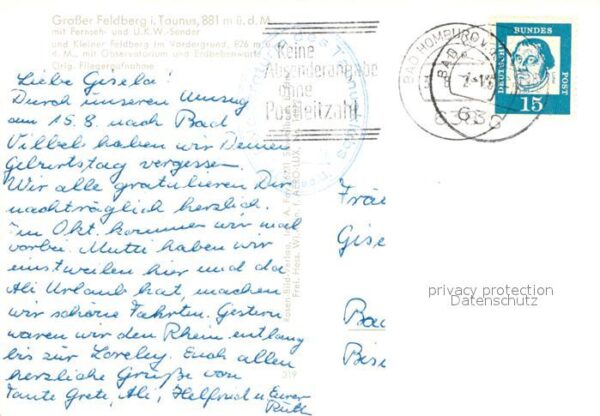 Großer Feldberg i. Taunus, 881 m ü. d. M.
mit Fernseh- und U.K.W.-Sender
und Kleiner Feldberg im Vordergrund, 826 m ü.
d. M., mit Observatorium und Erdbebenwarte
Orig. Fliegeraufnahme
Keine
Absenderangabe
ohne
Postleitzahl
BAD HOMBURG V
BAD
638
DEUTSCHE
BUNDES
POST
15
Liebe Gisela!
Durch unseren Umzug
am 15.8. nach Bad
Vilbel haben wir Deinen
Geburtstag vergessen.
Wir alle gratulieren Dir
nachträglich herzlich.
Im Okt. kommen wir mal
vorbei. Mutti haben wir
einstweilen hier und da
Ali Urlaub hat, machen
wir schöne Fahrten. Gestern
waren wir den Rhein entlang
bis zur Loreley. Euch allen
herzliche Grüße von
Tante Grete, Ali, Helfried u Eurer
Ruth
319
Fräu
Gise
Bad
Bise
privacy protection
Datenschutz